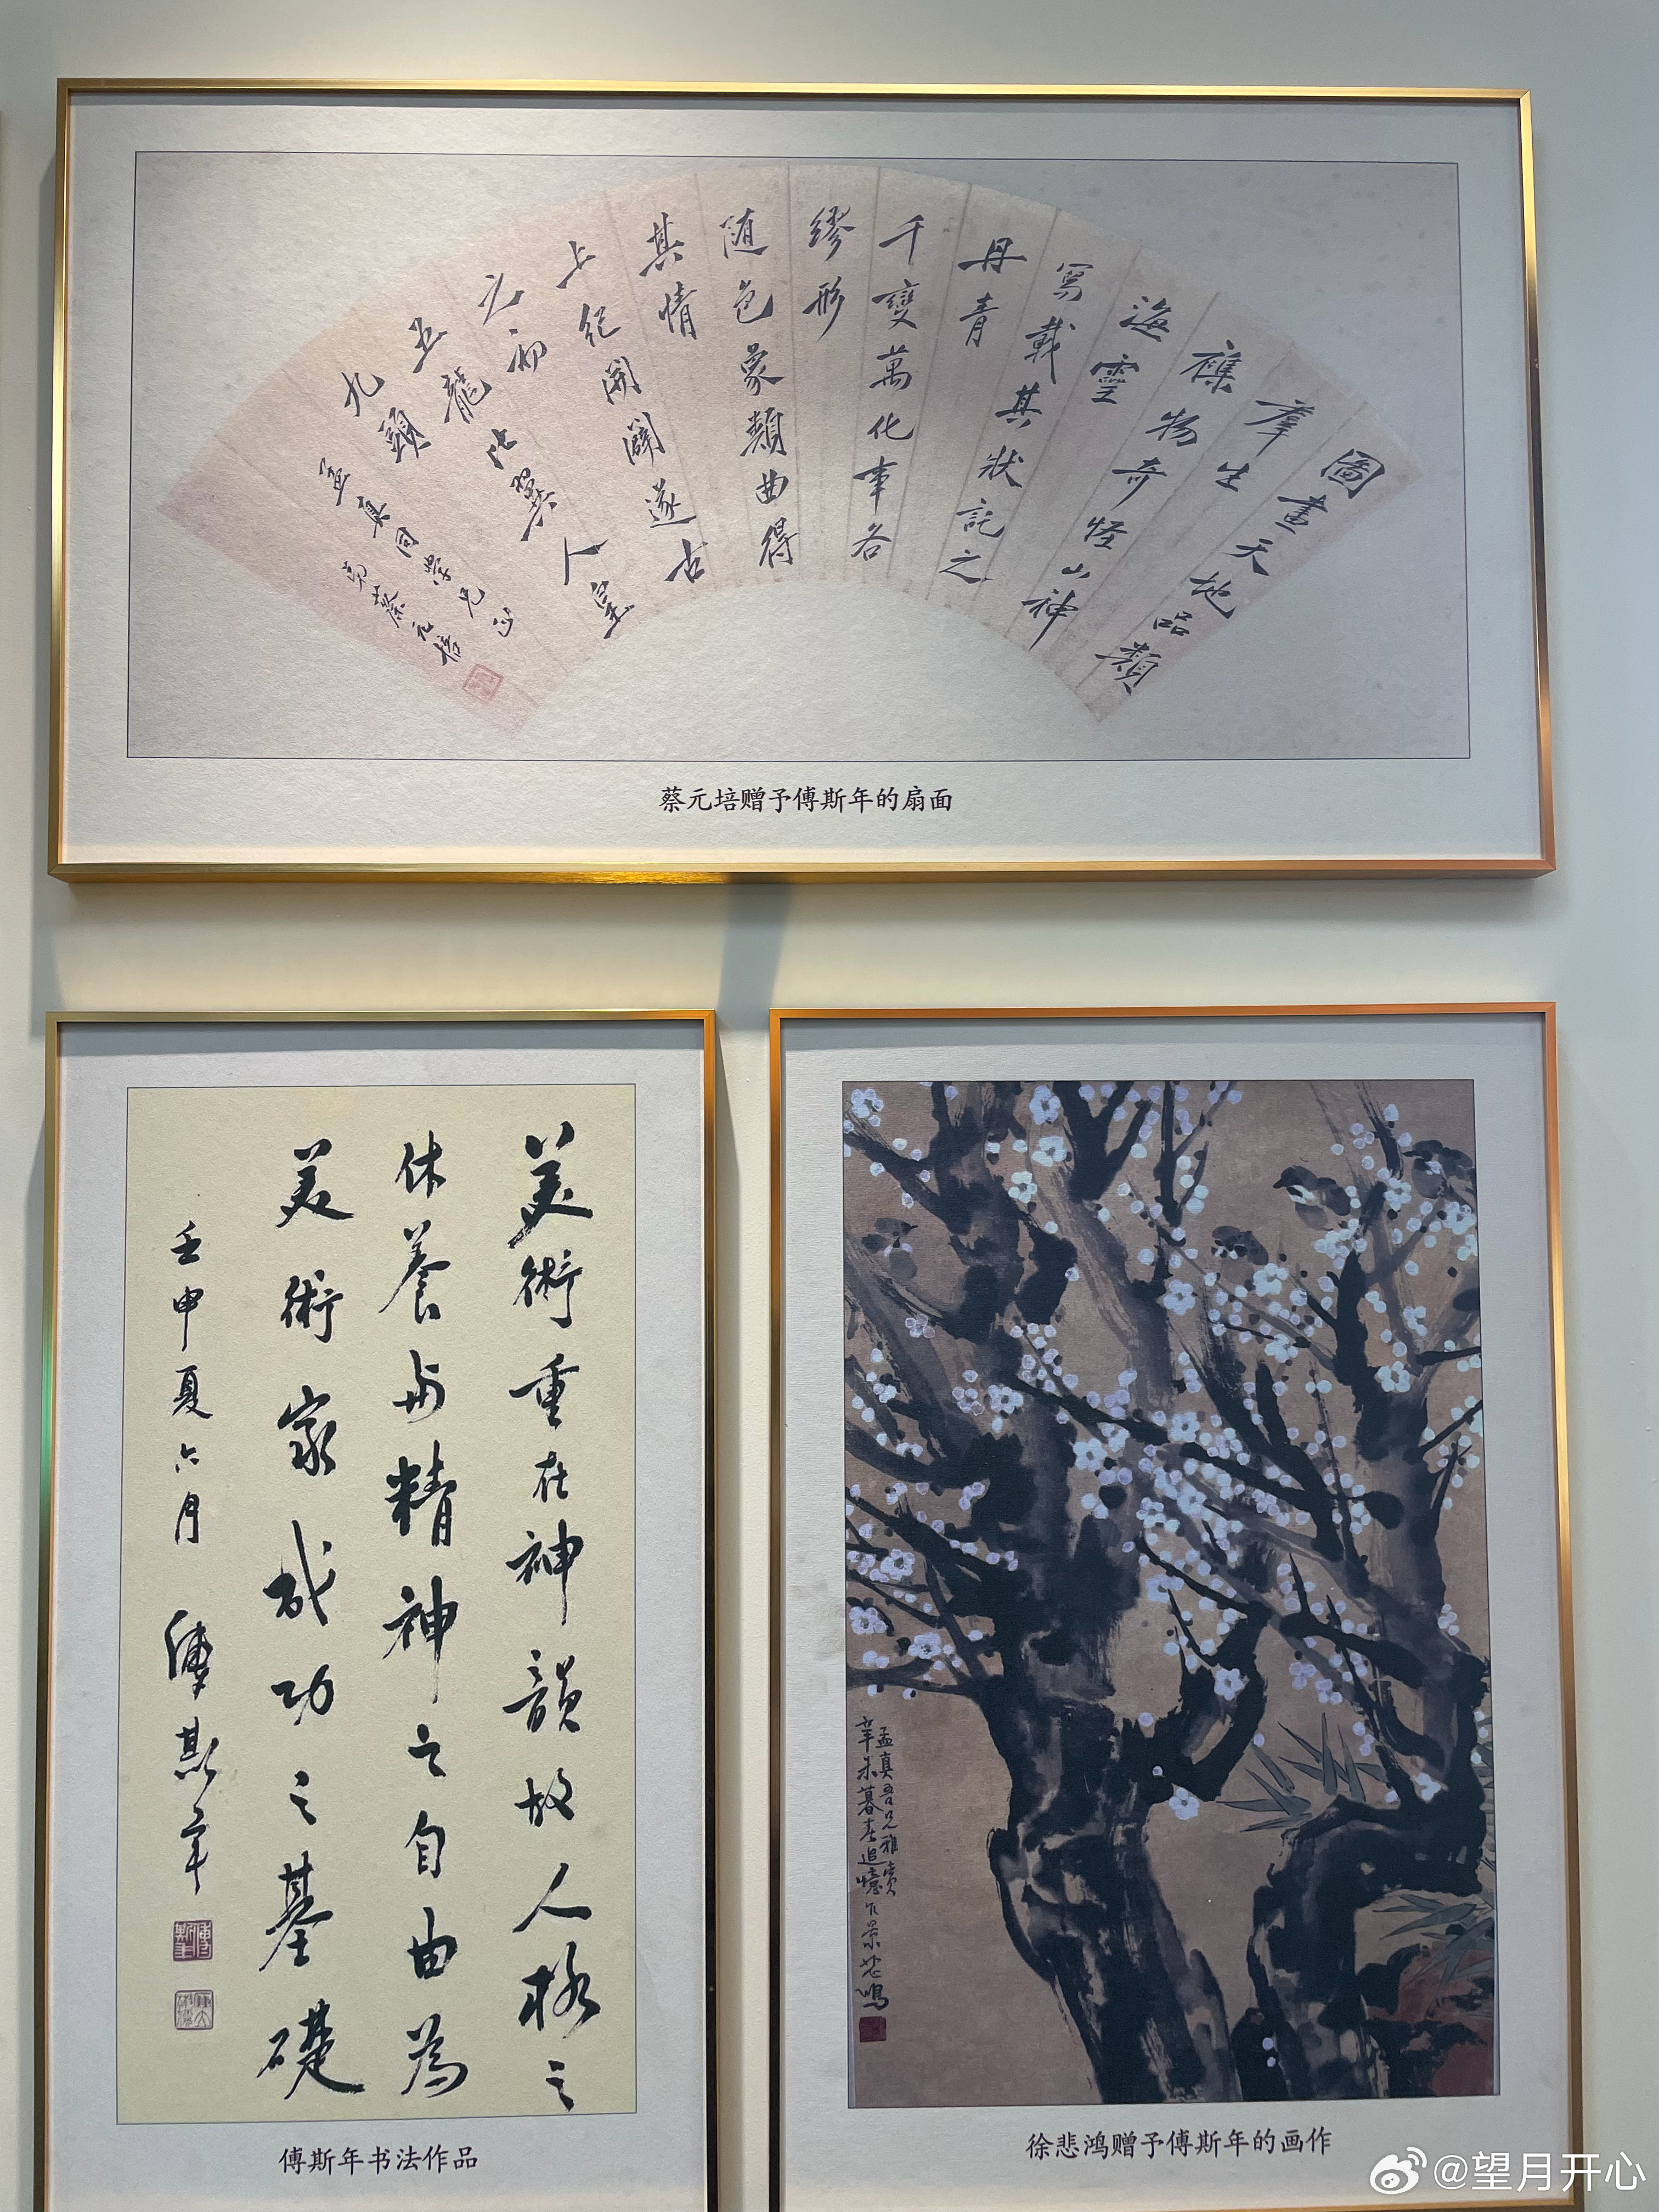 圖畫天地品類
羣生
襍物奇怪山神
海靈
寫載其狀託之
丹青
千變萬化事各
繆形
随色象類曲得
其情
上紀開闢遂古
之初
五龍比翼人皇
九頭
孟真同學兄正
弟蔡元培
蔡元培赠予傅斯年的扇面
美術重在神韻故人格之
休養与精神之自由為
美術家成功之基礎
壬申夏六月 傅斯年
傅斯年书法作品
孟真吾兄雅賞
辛未暮春追憶乍景悲鴻
徐悲鸿赠予傅斯年的画作
@望月开心